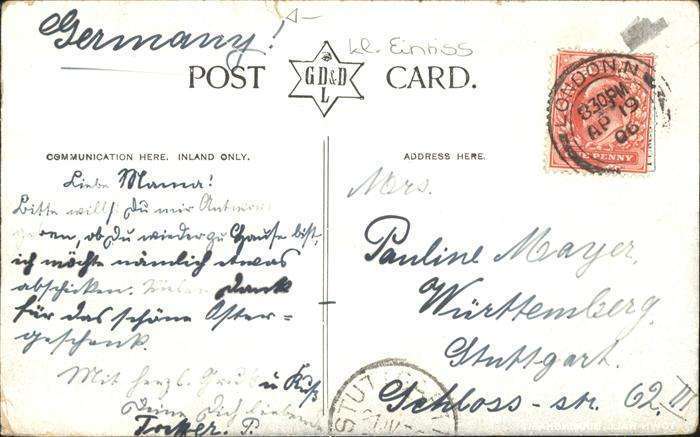 Germany!
kl. Einriss
POST CARD.
G.D.&D.
L
LONDON.N
8.30PM
AP 19
06
PENNY
COMMUNICATION HERE. INLAND ONLY.
Liebe Mama!
Bitte willst Du mir Antwort
geben, ob Du wieder zu Hause bist,
ich möchte nämlich etwas
abschicken. Vielen Dank
für das schöne Oster=
geschenk.
Mit herzl. Gruß u Kuß
Deine Dich liebende
Tochter. P.
ADDRESS HERE.
Mrs.
Pauline Mayer,
Württemberg.
Stuttgart.
Schloss-str. 62, III
STUTTGART